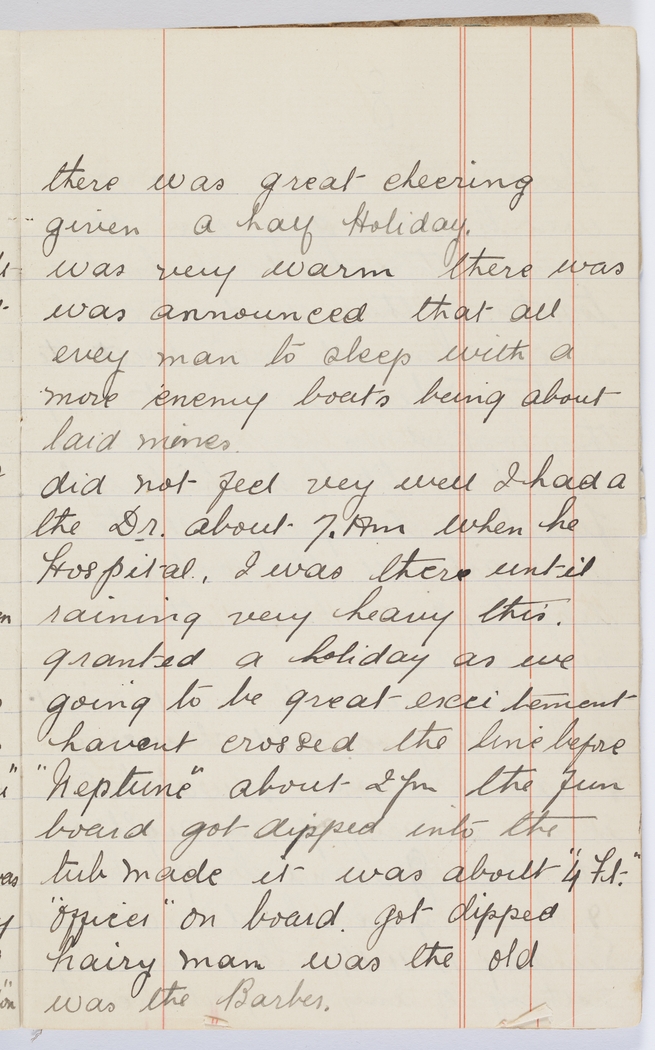 there was great cheering
given a half Holiday.
was very warm there was
was announced that all
evey man to sleep with a
more enemy boats being about
laid mines.
did not feel vey well I had a
the Dr. about 7. Am when he
Hospital, I was there until
raining very heavy this.
granted a holiday as we
going to be great excitement
havent crossed the line before
"Neptune" about 2pm the fun
board got dipped into the
tub made it was about "4 Ft."
"officer" on board. got dipped
hairy man was the old
was the Barber.